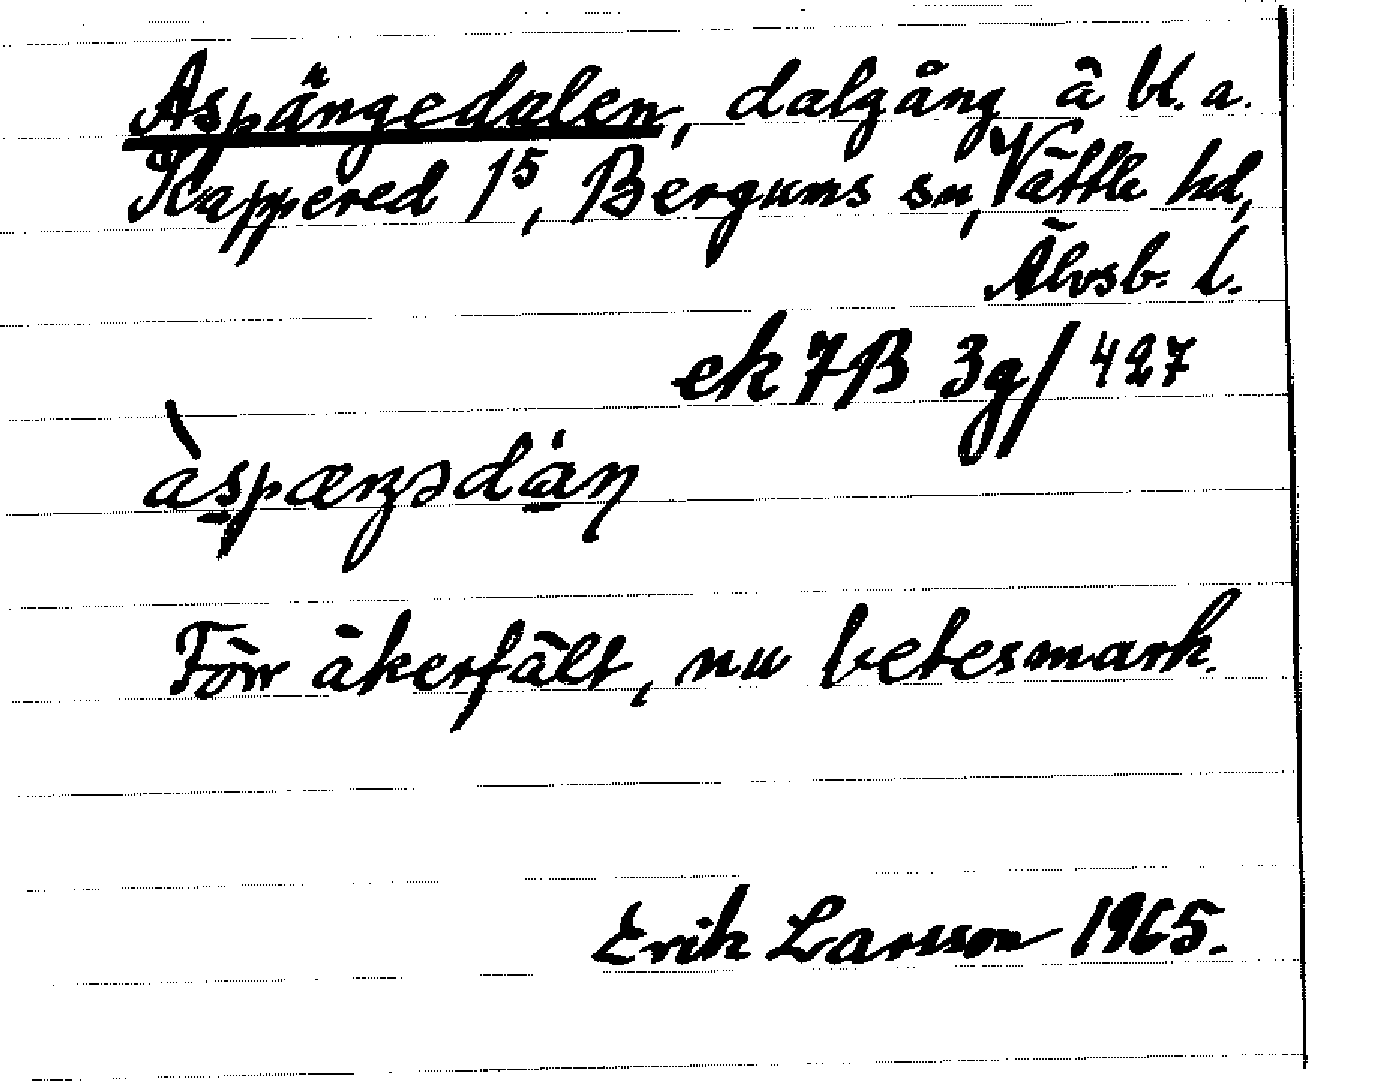 Aspängedalen, dalgång å bl. a.
Kappered 1⁵, Bergums sn, Vättle hd,
Älvsb. l.
ek 7B 3g/427
àspæŋədan
Förr åkerfält, nu betesmark.
Erik Larsson 1965.